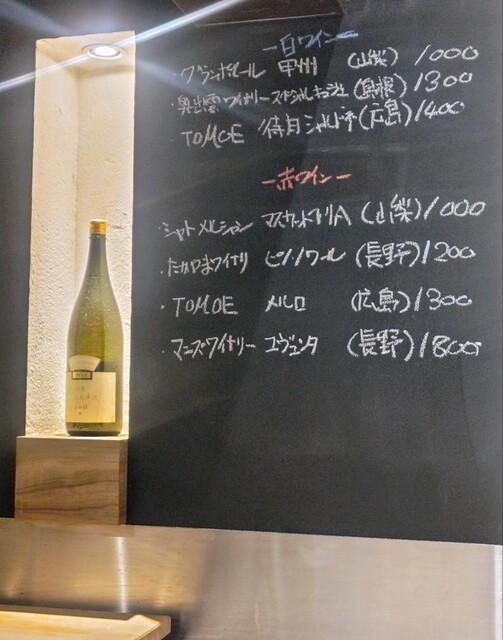 -白ワイン-
・グランポレール 甲州 (山梨) / 1000
・奥出雲ワイナリー スペシャルキュヴェ (島根) 1300
・TOMOE 待自シャルドネ (広島) 1400
-赤ワイン-
・シャトーメルシャン マスカットベリーA (山梨) / 1000
・たかやまワイナリー ピノ・ノワール (長野) 1200
・TOMOE メルロ (広島) 1300
・マンズワイナリー ユヴェンタ (長野) 1800